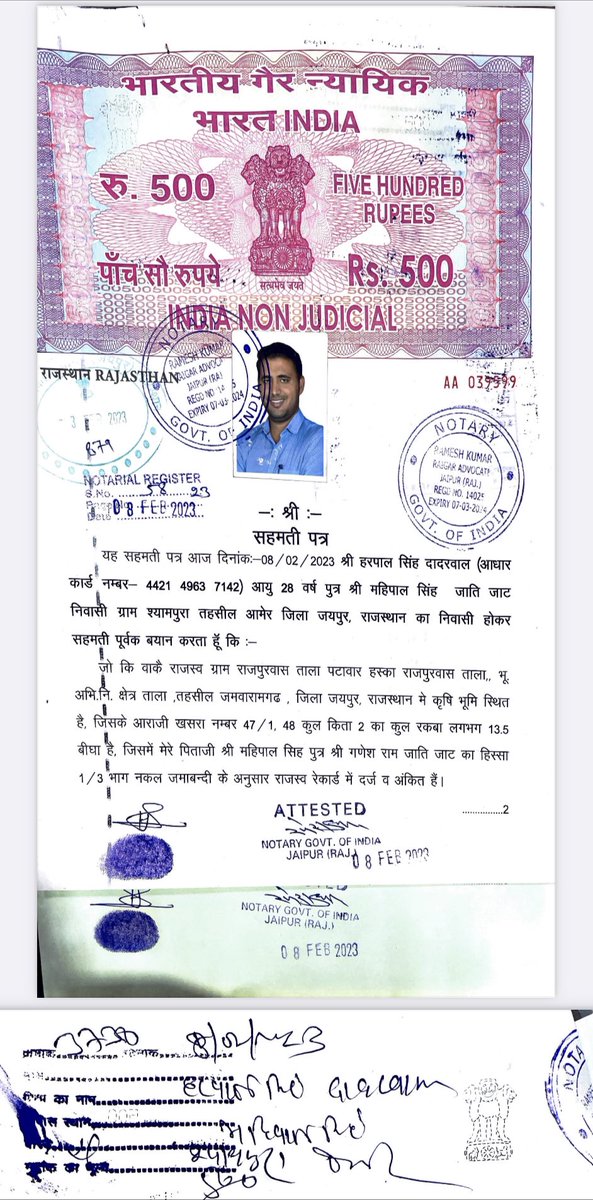 भारतीय गैर न्यायिक
भारत INDIA
रु. 500
FIVE HUNDRED
RUPEES
पाँच सौ रुपये
सत्यमेव जयते
Rs. 500
INDIA NON JUDICIAL
राजस्थान RAJASTHAN
AA 039999
NOTARY
RAMESH KUMAR
RAIGAR ADVOCATE
JAIPUR (RAJ.)
REGD NO. 14025
EXPIRY 07-03-2024
GOVT. OF INDIA
NOTARY
RAMESH KUMAR
RAIGAR ADVOCATE
JAIPUR (RAJ.)
REGD NO. 14025
EXPIRY 07-03-2024
GOVT. OF INDIA
2023
879
NOTARIAL REGISTER
S.No. 58 23
Date 08 FEB 2023
–: श्री :–
सहमती पत्र
यह सहमती पत्र आज दिनांक:–08/02/2023 श्री हरपाल सिंह दादरवाल (आधार
कार्ड नम्बर– 4421 4963 7142) आयु 28 वर्ष पुत्र श्री महिपाल सिंह जाति जाट
निवासी ग्राम श्यामपुरा तहसील आमेर जिला जयपुर, राजस्थान का निवासी होकर
सहमती पूर्वक बयान करता हूँ कि :–
जो कि वाकै राजस्व ग्राम राजपुरवास ताला पटावार हस्का राजपुरवास ताला,, भू.
अभि.नि. क्षेत्र ताला ,तहसील जमवारामगढ , जिला जयपुर, राजस्थान मे कृषि भूमि स्थित
है, जिसके आराजी खसरा नम्बर 47/1, 48 कुल किता 2 का कुल रकबा लगभग 13.5
बीघा है, जिसमें मेरे पिताजी श्री महिपाल सिह पुत्र श्री गणेश राम जाति जाट का हिस्सा
1/3 भाग नकल जमाबन्दी के अनुसार राजस्व रेकार्ड में दर्ज व अंकित हैं।
...............2
ATTESTED
NOTARY GOVT. OF INDIA
JAIPUR (RAJ.)
08 FEB 2023
NOTARY GOVT. OF INDIA
JAIPUR (RAJ.)
08 FEB 2023
क्रमांक 3730 8/02/2023
का नाम
NOTA